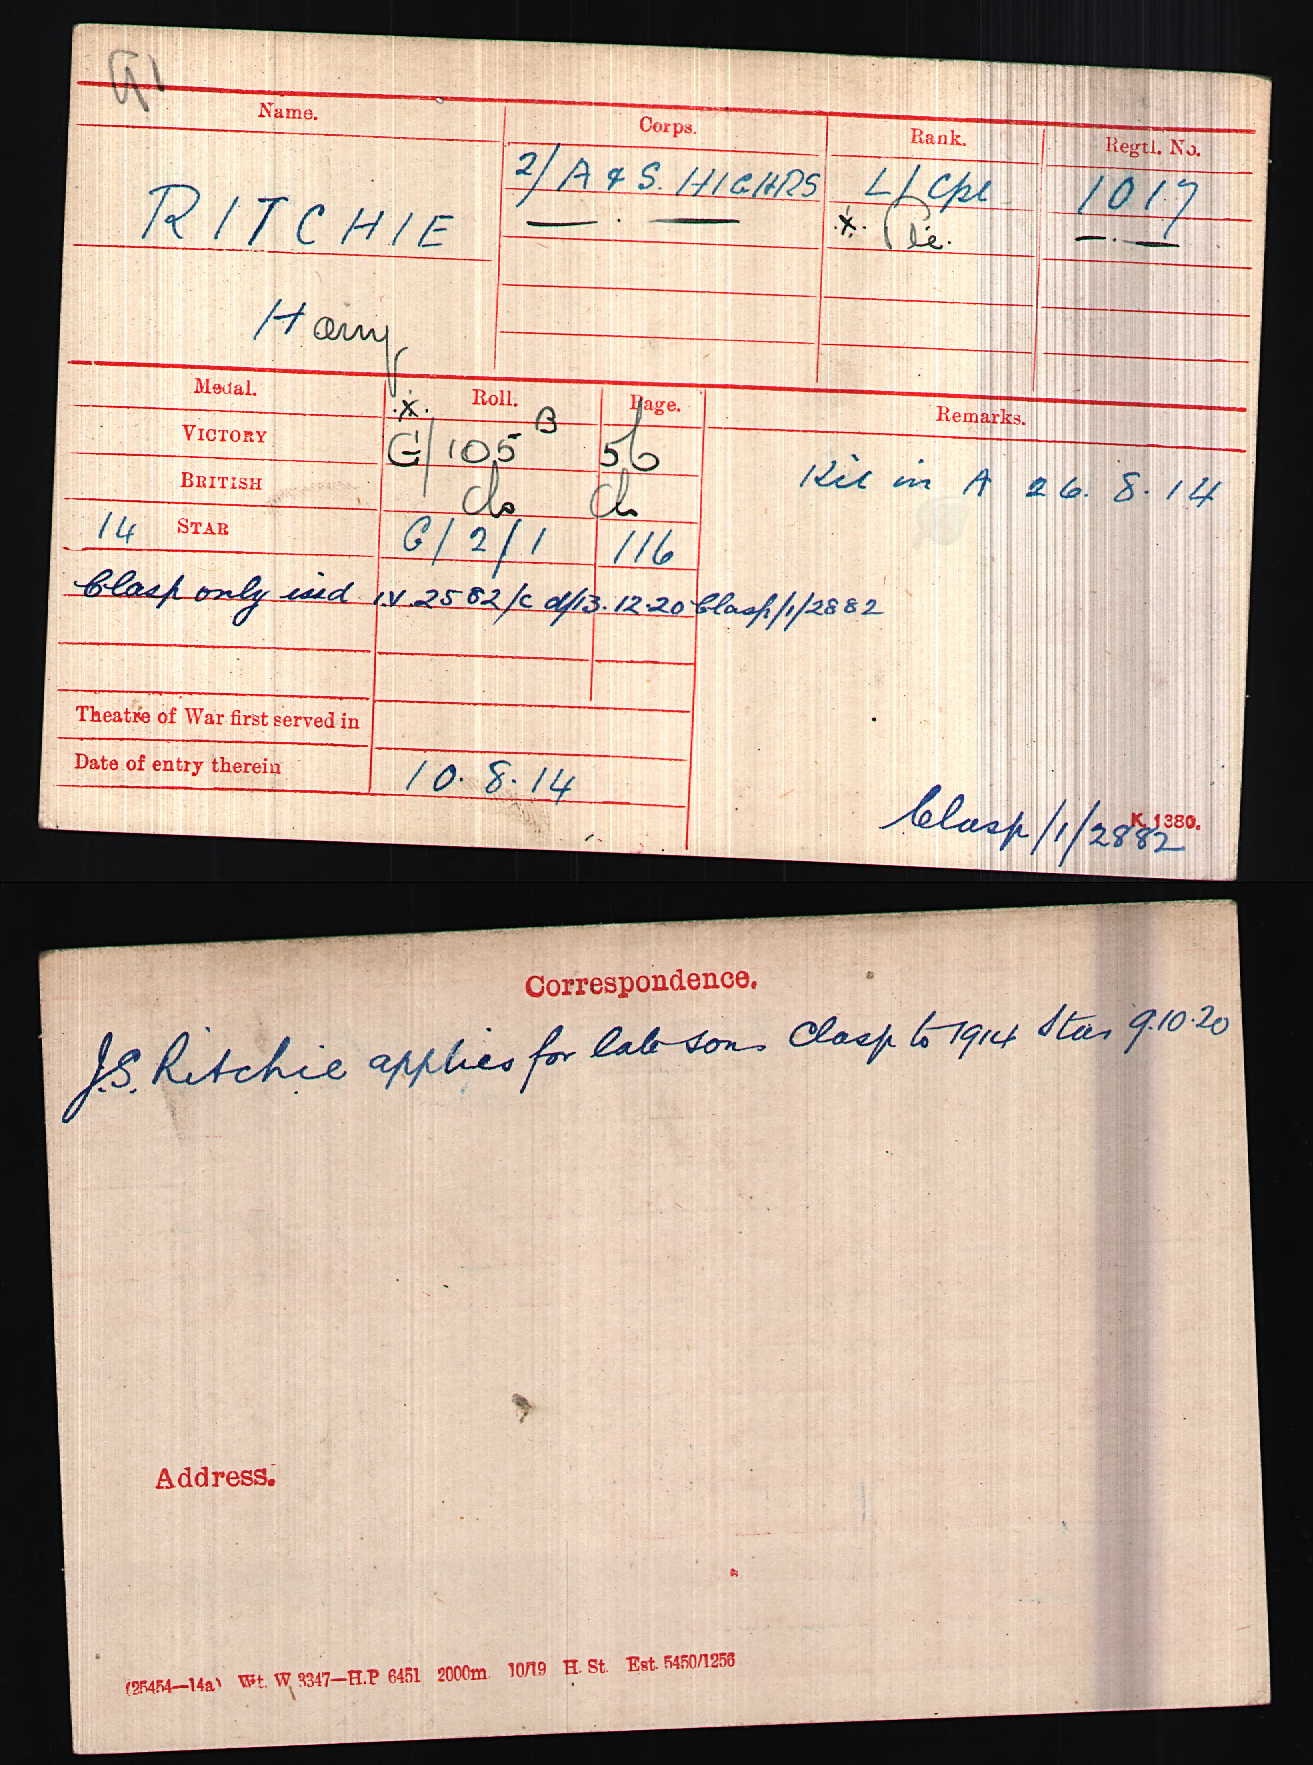 Name. Corps. Rank. Regtl. No.
RITCHIE 2/A & S. HIGHRS L/Cpl 1017
— . — .x. Pte. — . —
Harry
Medal. .x. Roll. Page. Remarks.
VICTORY G/105 B 56 Kil in A 26.8.14
BRITISH do do
14 STAR G/2/1 116
Clasp only issd I.V.2582/C d/13.12.20 Clasp/1/2882
Theatre of War first served in
Date of entry therein 10.8.14
K. 1380.
Clasp/1/2882
Correspondence.
J.S. Ritchie applies for late sons Clasp to 1914 Star 9.10.20
Address.
(25454—14a) Wt. W 3347—H.P 6451 2000m 10/19 H. St. Est. 5450/1256